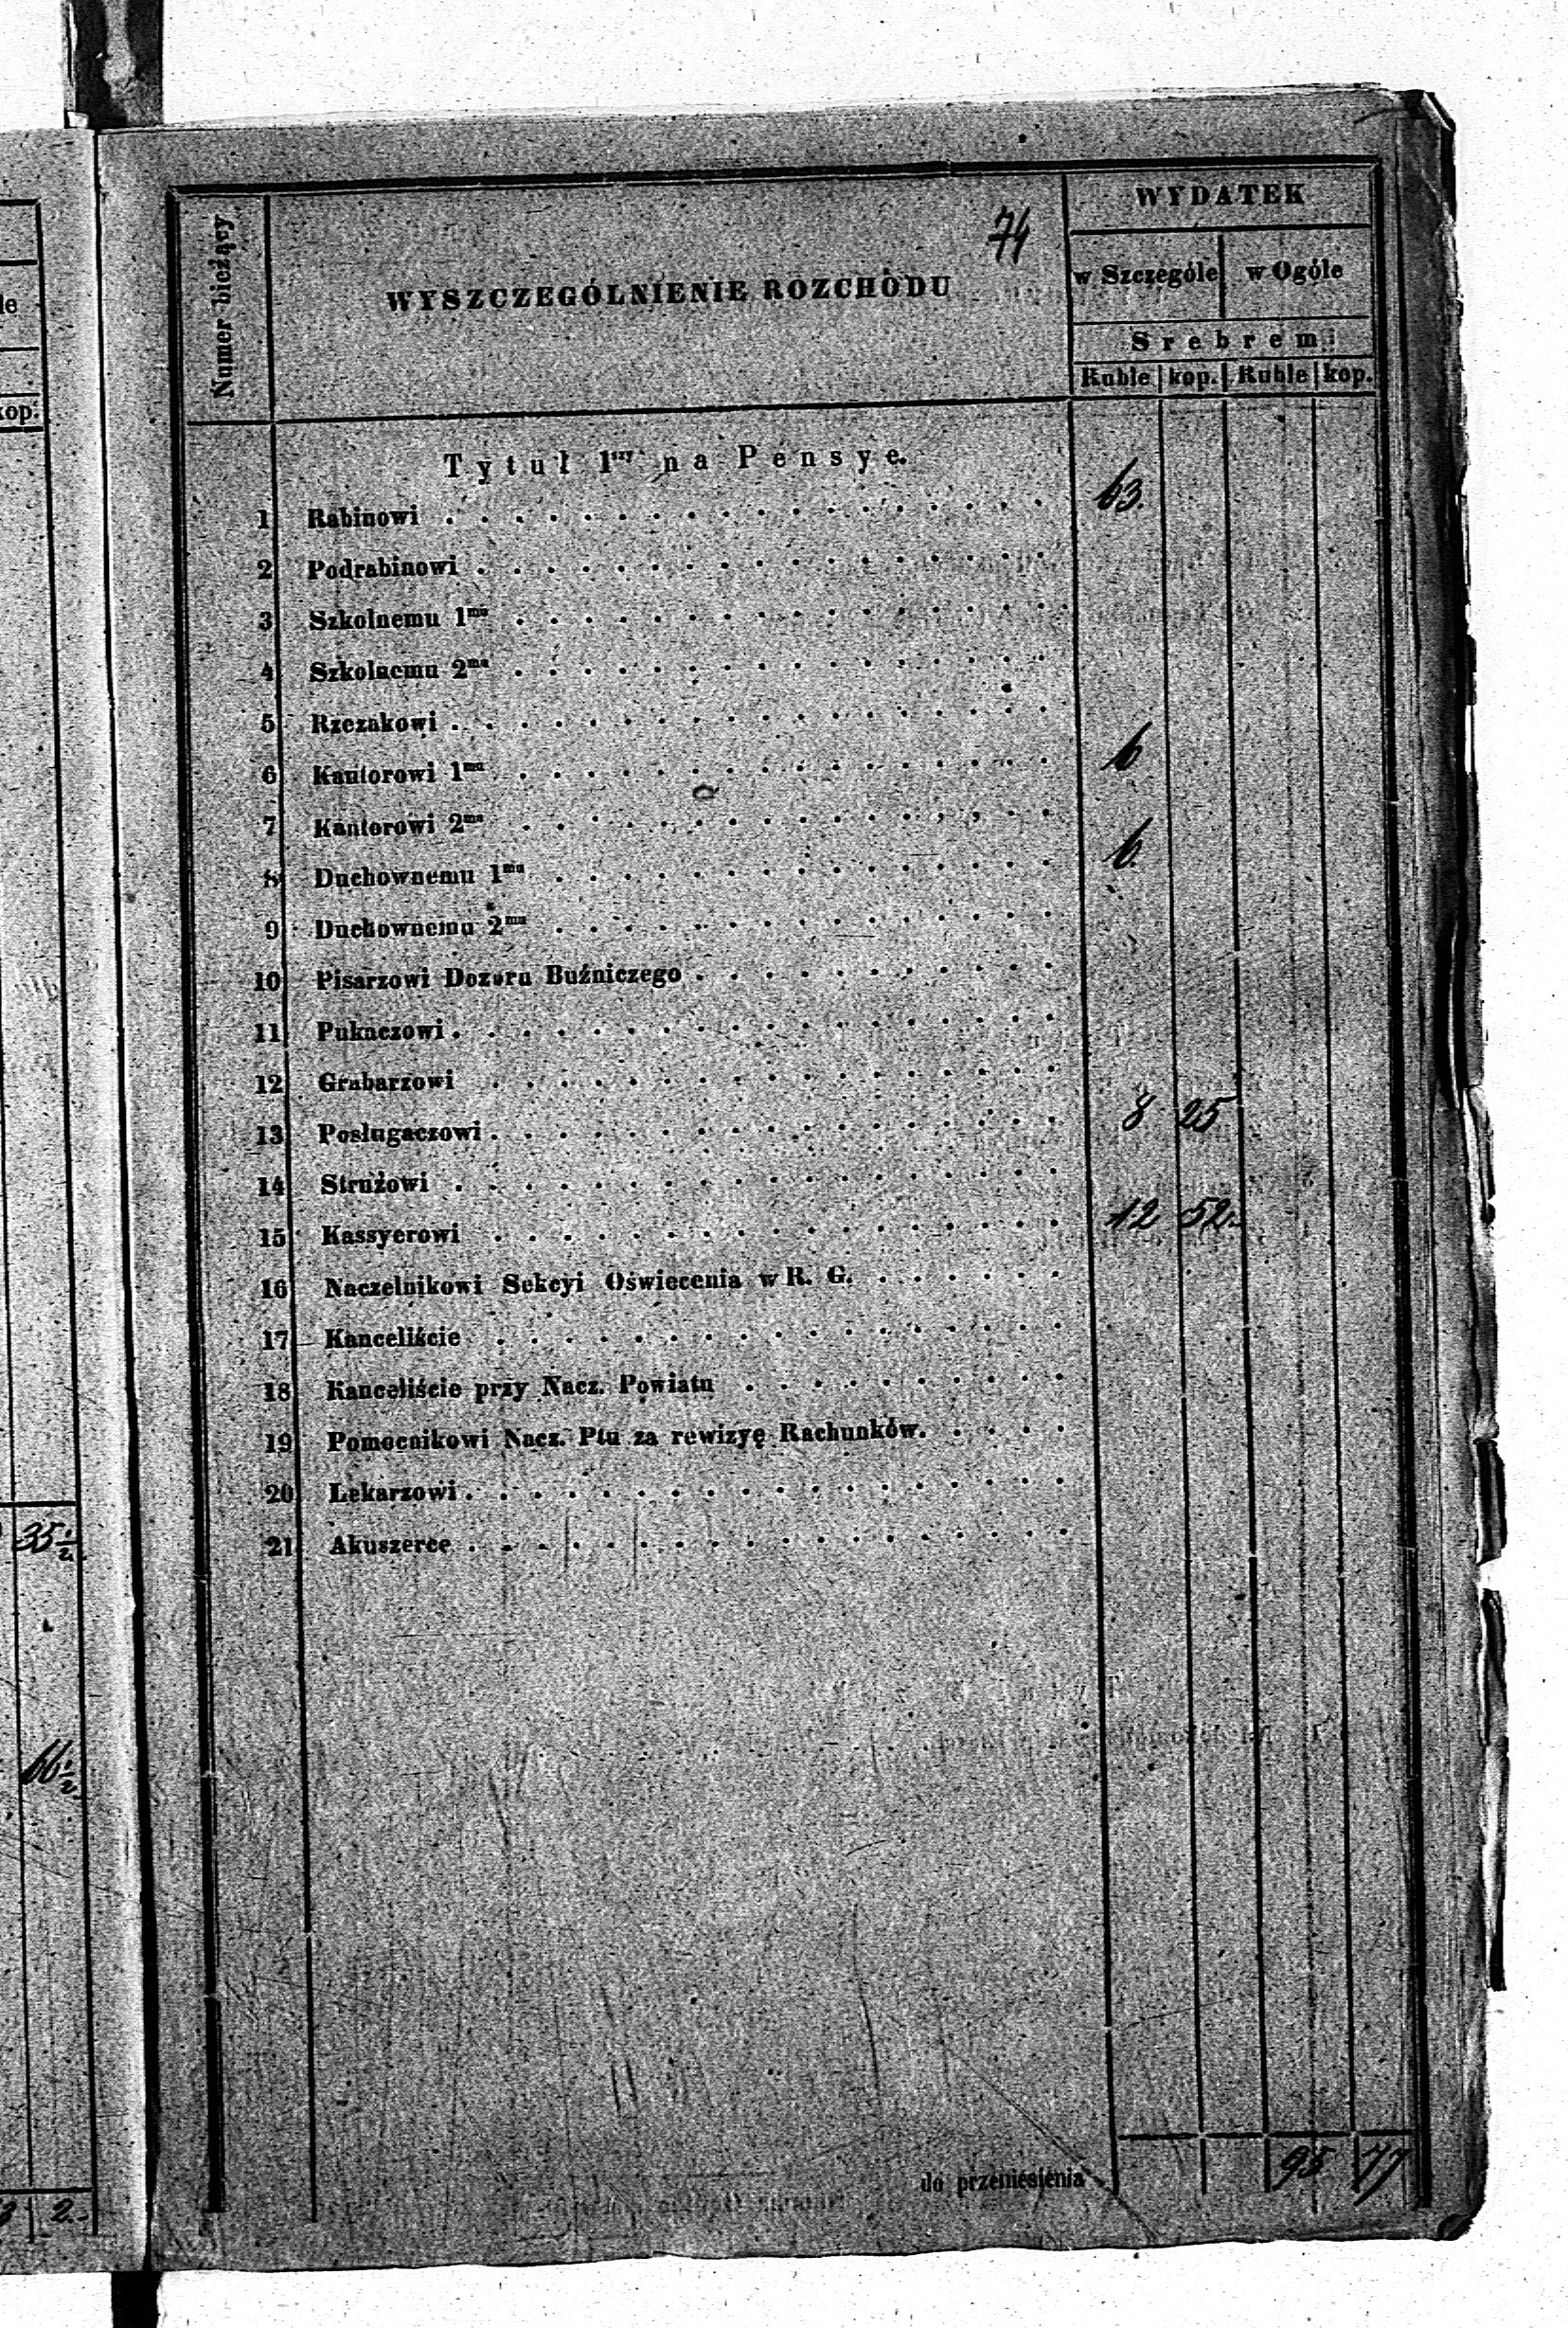 le
kop.
35 1/2
66 1/2
2.
74
Numer bieżący
WYSZCZEGÓLNIENIE ROZCHODU
WYDATEK
w Szczególe w Ogóle
Srebrem
Ruble kop. Ruble kop.
Tytuł 1szy na Pensye.
1 Rabinowi . . . . 63.
2 Podrabinowi . . . .
3 Szkolnemu 1mu . . . .
4 Szkolnemu 2mu . . . .
5 Rzezakowi . . . .
6 Kantorowi 1mu . . . . 6
7 Kantorowi 2mu . . . .
8 Duchownemu 1mu . . . . 6.
9 Duchownemu 2mu . . . .
10 Pisarzowi Dozoru Buźniczego . . . .
11 Pukaczowi . . . .
12 Grabarzowi . . . .
13 Posługaczowi . . . . 8 25
14 Strużowi . . . .
15 Kassyerowi . . . . 12 52.
16 Naczelnikowi Sekcyi Oświecenia w R. G. . . . .
17 Kanceliście . . . .
18 Kanceliście przy Nacz. Powiatu . . . .
19 Pomocnikowi Nacz. Ptu za rewizyę Rachunków. . . . .
20 Lekarzowi . . . .
21 Akuszerce . . . .
do przeniesienia 95 77